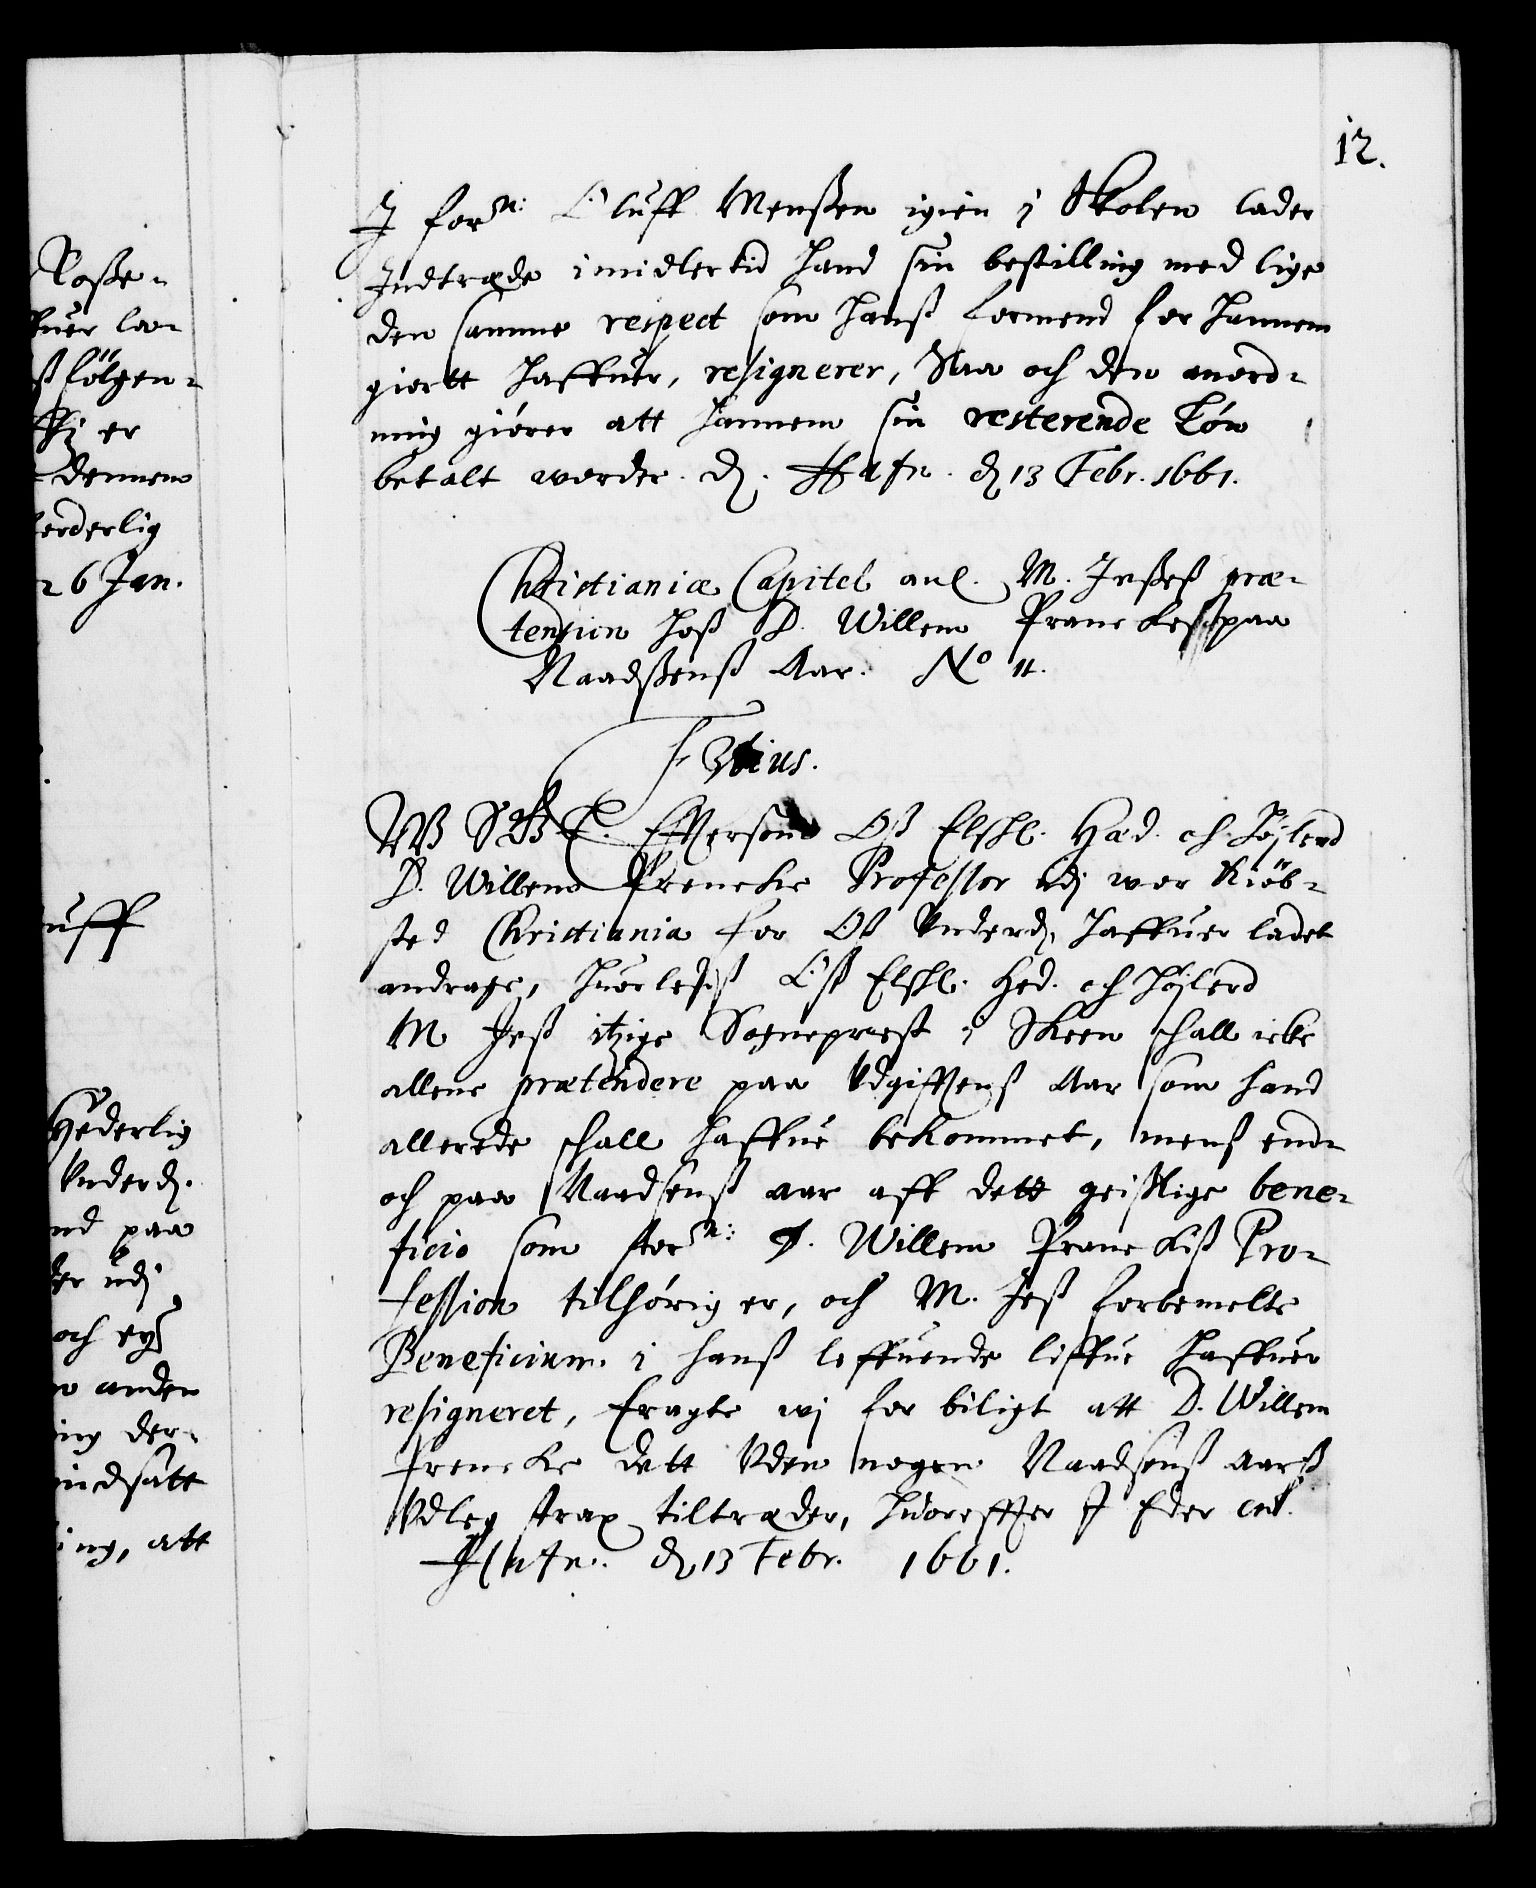 12.
I forn: Oluff Menßen igien i Skolen lader
Indtræde imidlertid hand sin bestilling med lige
den samme respect som hanß formend for hannem
giortt haffuer, resignerer, Saa och den anord-
ning giörer att hannem sin resterende Lön
betalt worder. D. Hafn. d 13 Febr. 1661.
Christianiæ Capitel anl. M. Jeßeß præ-
tension hoß D. Willem Franckes paa
Naadßenß Aar. No 11.
F 3tius.
W S G T. Efftersom Oß Elskl. Hæd. och höylerd
D. Willem Francke Professor udj wor Kiöb-
sted Christiania for Oß Underd. haffuer ladet
andrage, huorledeß Oß Elskl. Hed. och höylerd
M Jeß itzige Sogneprest i Skeen schall icke
allene prætendere paa Udgifftenß Aar som hand
allerede schall haffue bekommet, menß end-
och paa Naadsenß aar aff dett geistlige bene-
ficio som forn: D. Willem Franckiß Pro-
fession tilhörig er, och M. Jeß forbemelte
Beneficium i hanß leffuende liffue haffuer
resigneret, Eragte wj for biligt att D. Willem
Francke dett Uden nogen Naadsenß aarß
Udleg strax tiltræder, huoreffter I Eder etc.
Hafn. d 13 Febr. 1661.
Roße-
fölgen-
er
dennem
26 Jan.
uff
Hederlig
Underd.
nd paa
er udj
och ey
anden
ing der-
indsatt
ing, att